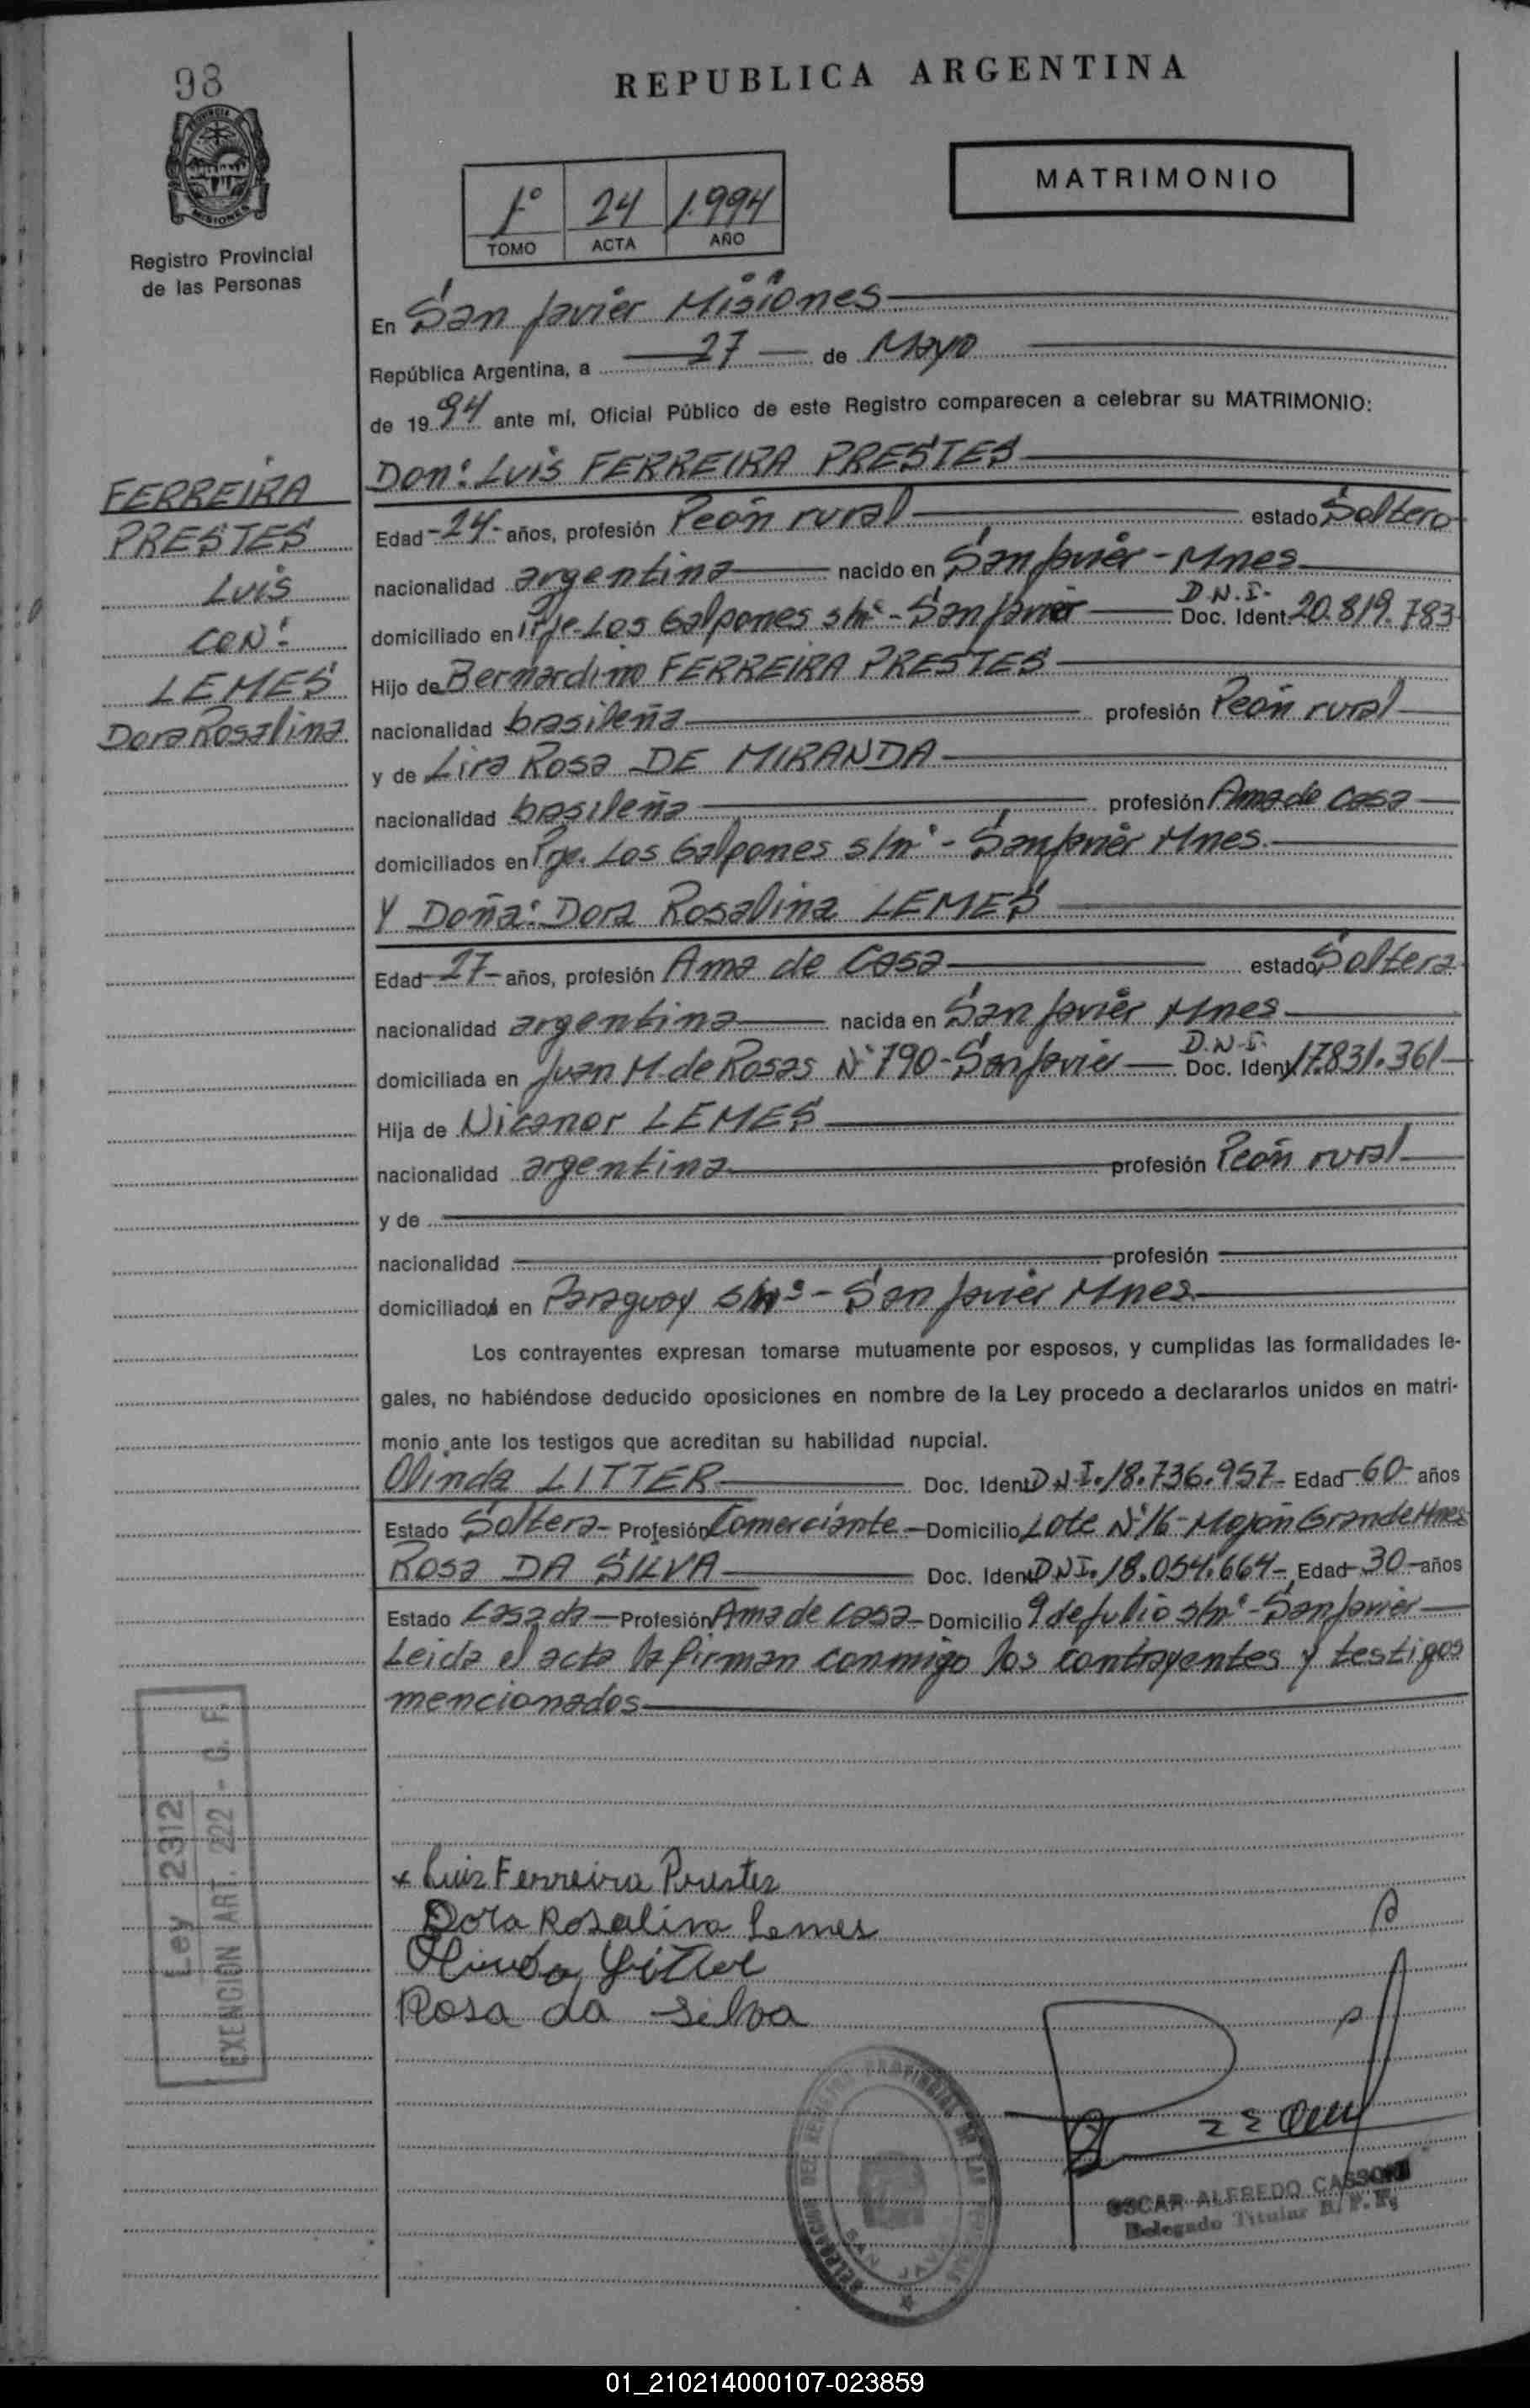 98
REPUBLICA ARGENTINA
PROVINCIA DE
MISIONES
Registro Provincial
de las Personas
1º 24 1.994
TOMO ACTA AÑO
MATRIMONIO
En San Javier Misiones
República Argentina, a 27 de Mayo
de 1994 ante mí, Oficial Público de este Registro comparecen a celebrar su MATRIMONIO:
FERREIRA
PRESTES
Luis
CON:
LEMES
Dora Rosalina
Don: Luis FERREIRA PRESTES
Edad -24- años, profesión Peón rural estado Soltero
nacionalidad argentina nacido en San Javier - Mnes
domiciliado en Pje. Los Galpones s/nº - San Javier D.N.I. Doc. Ident. 20.819.783
Hijo de Bernardino FERREIRA PRESTES
nacionalidad brasileña profesión Peón rural
y de Lira Rosa DE MIRANDA
nacionalidad brasileña profesión Ama de casa
domiciliados en Pje. Los Galpones s/nº - San Javier Mnes.
Y Doña: Dora Rosalina LEMES
Edad -27- años, profesión Ama de Casa estado Soltera
nacionalidad argentina nacida en San Javier Mnes
domiciliada en Juan M. de Rosas Nº 790 - San Javier D.N.I. Doc. Ident 17.831.361
Hija de Nicanor LEMES
nacionalidad argentina profesión Peón rural
y de
nacionalidad profesión
domiciliados en Paraguay s/nº - San Javier Mnes
Los contrayentes expresan tomarse mutuamente por esposos, y cumplidas las formalidades le-
gales, no habiéndose deducido oposiciones en nombre de la Ley procedo a declararlos unidos en matri-
monio ante los testigos que acreditan su habilidad nupcial.
Olinda LITTER Doc. Ident D.N.I. 18.736.957 - Edad -60- años
Estado Soltera - Profesión Comerciante - Domicilio Lote Nº 16 - Mojón Grande Mnes
Rosa DA SILVA Doc. Ident D.N.I. 18.054.664 - Edad -30- años
Estado Casada - Profesión Ama de casa - Domicilio 9 de Julio s/nº - San Javier
Leida el acta la firman conmigo los contrayentes y testigos
mencionados
Ley 2312
EXENCION ART. 222 - C. F.
x Luis Ferreira Prestes
Dora Rosalina Lemes
Olinda Litter
Rosa da Silva
DELEGACION DEL REGISTRO PROVINCIAL DE LAS PERSONAS
SAN JAVIER
OSCAR ALFREDO CASSONI
Delegado Titular R. P. P.
01_210214000107-023859